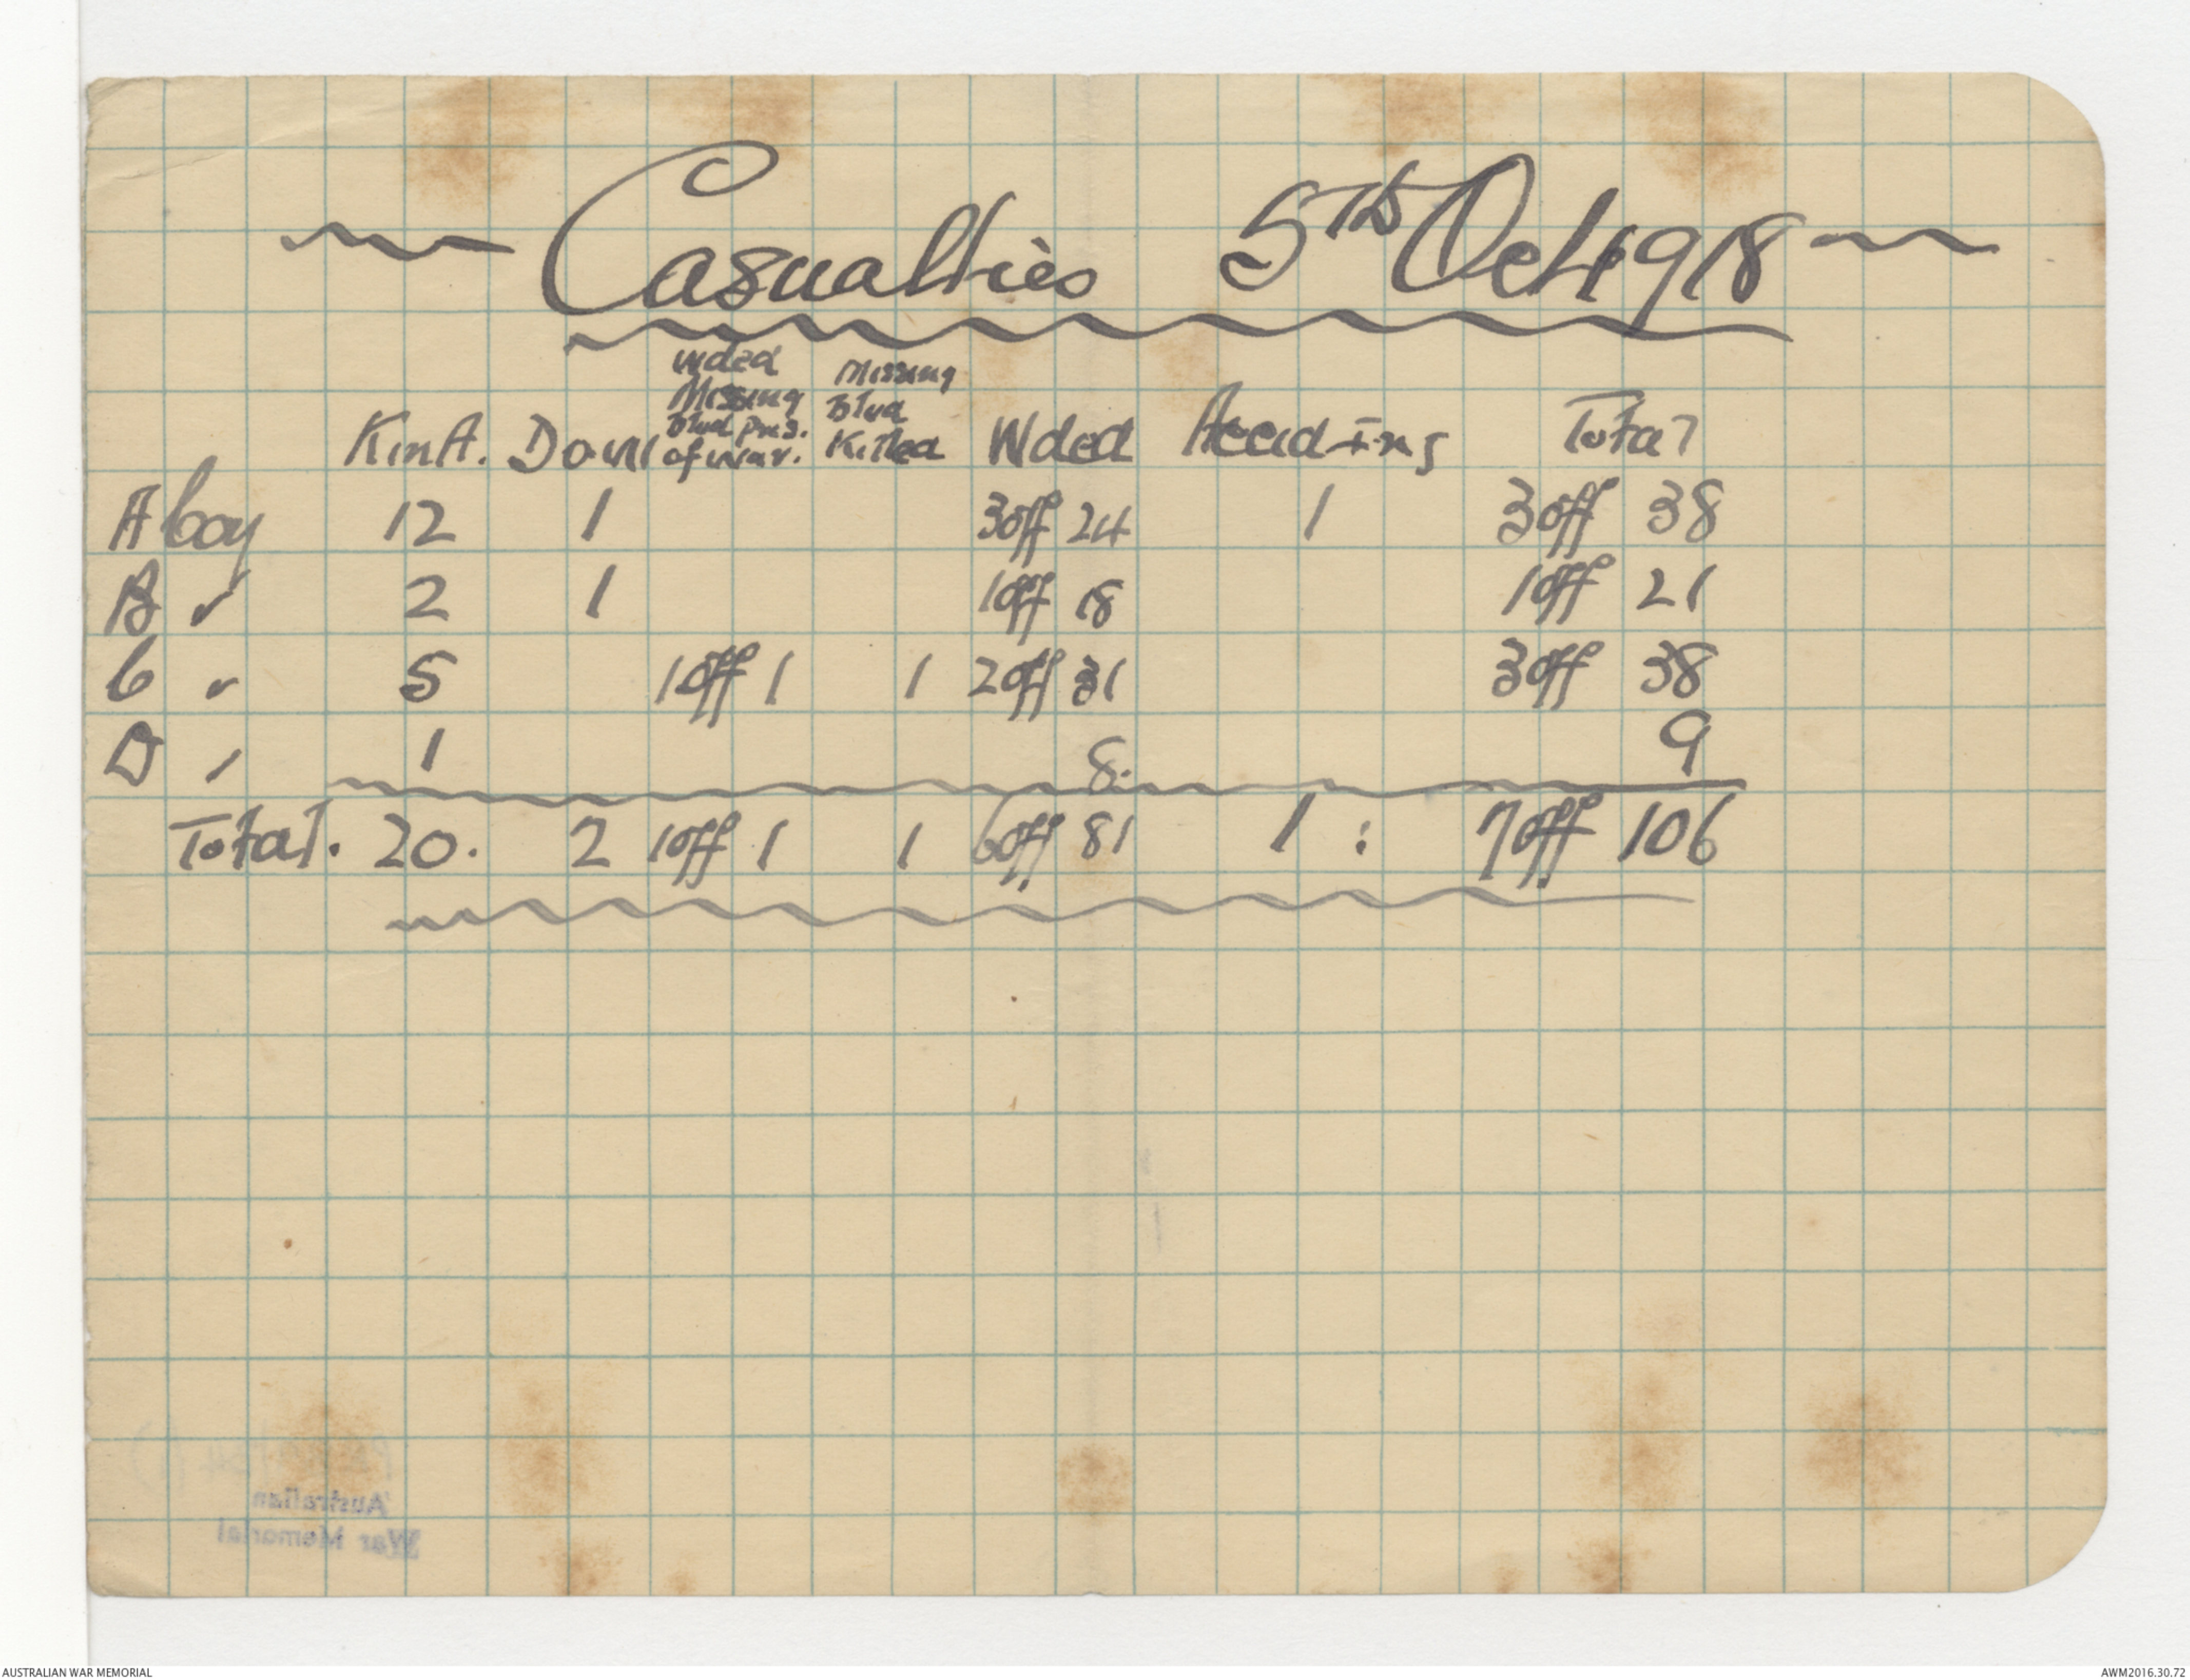 Casualties 5th Oct 1918
Wded
Missing Missing
Blvd Pris. Blvd
K in A. D of W of War. Killed Wded Accid Inj Total
A Coy 12 1 3 off 24 1 3 off 38
B " 2 1 1 off 18 1 off 21
C " 5 1 off 1 1 2 off 31 3 off 38
D " 1 8. 9
Total. 20. 2 1 off 1 1 6 off 81 1 : 7 off 106
Australian
War Memorial
AUSTRALIAN WAR MEMORIAL AWM2016.30.72